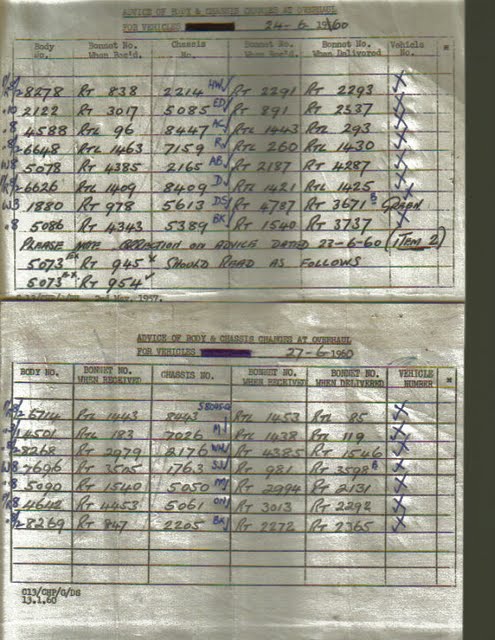 ADVICE OF BODY & CHASSIS CHANGES AT OVERHAUL
FOR VEHICLES 24-6 1960
Body No. Bonnet No. When Rec'd. Chassis No. Bonnet No. When Rec'd. Bonnet No. When Delivered Vehicle No.
8278 RT 838 2214 HW RT 2291 RT 2293
2122 RT 3017 5085 ED RT 891 RT 2537
4588 RTL 96 8447 AC RTL 1443 RTL 293
6648 RTL 1463 7159 R RTL 260 RTL 1430
W8 5078 RT 4385 2165 AB RT 2187 RT 4287
6626 RTL 1409 8409 D RTL 1421 RTL 1425
W3 1880 RT 978 5613 DS RT 4787 RT 3671 B GREEN
.8 5086 RT 4343 5389 BK RT 1540 RT 3737
PLEASE NOTE CORRECTION ON ADVICE DATED 23-6-60 (ITEM 2)
5073 BX RT 945 SHOULD READ AS FOLLOWS
5073 BX RT 954
2nd Nov. 1957.
ADVICE OF BODY & CHASSIS CHANGES AT OVERHAUL
FOR VEHICLES 27-6 1960
BODY NO. BONNET NO. WHEN RECEIVED CHASSIS NO. BONNET NO. WHEN RECEIVED BONNET NO. WHEN DELIVERED VEHICLE NUMBER
6714 RTL 1443 8443 RTL 1453 RTL 85
4501 RTL 183 7026 MJ RTL 1438 RTL 119
8268 RT 2979 2176 WH RT 4385 RT 1546
W8 7696 RT 3505 1763 SJ RT 981 RT 3598 B
.8 5090 RT 1540 5050 RT 2994 RT 2131
4642 RT 4453 5061 RT 3013 RT 2292
8269 RT 847 2205 BK RT 2272 RT 2365
C13/CHP/G/DS
13.1.60